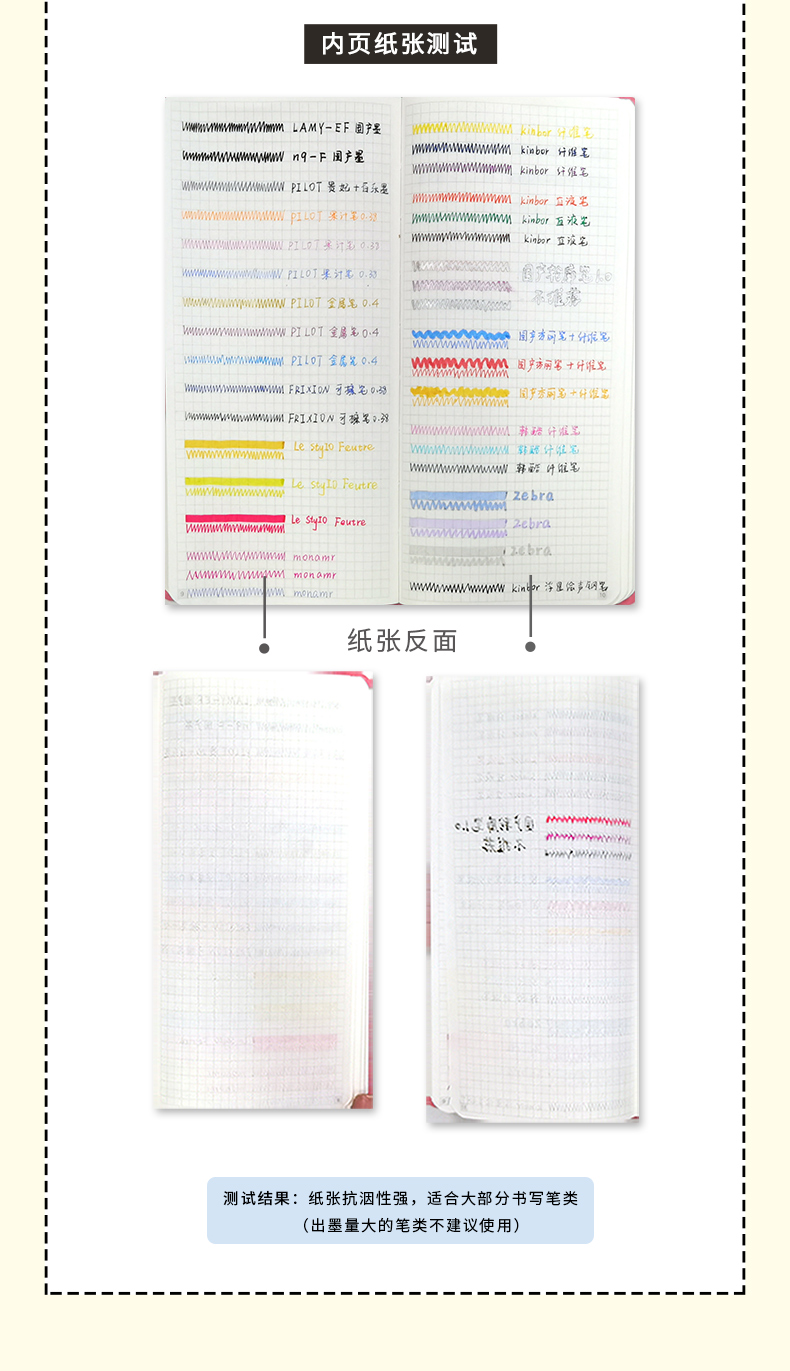 内页纸张测试
LAMY-EF 国产墨
n9-F 国产墨
PILOT 贵妃+百乐墨
PILOT 果汁笔 0.38
PILOT 果汁笔 0.38
PILOT 果汁笔 0.38
PILOT 金属笔 0.4
PILOT 金属笔 0.4
PILOT 金属笔 0.4
FRIXION 可擦笔 0.38
FRIXION 可擦笔 0.38
Le Stylo Feutre
Le Stylo Feutre
Le Stylo Feutre
monamr
monamr
monamr
kinbor 纤维笔
kinbor 纤维笔
kinbor 纤维笔
kinbor 直液笔
kinbor 直液笔
kinbor 直液笔
不推荐
国产秀丽笔+纤维笔
国产秀丽笔+纤维笔
国产秀丽笔+纤维笔
纤维笔
纤维笔
纤维笔
zebra
zebra
zebra
kinbor
纸张反面
测试结果：纸张抗洇性强，适合大部分书写笔类
（出墨量大的笔类不建议使用）